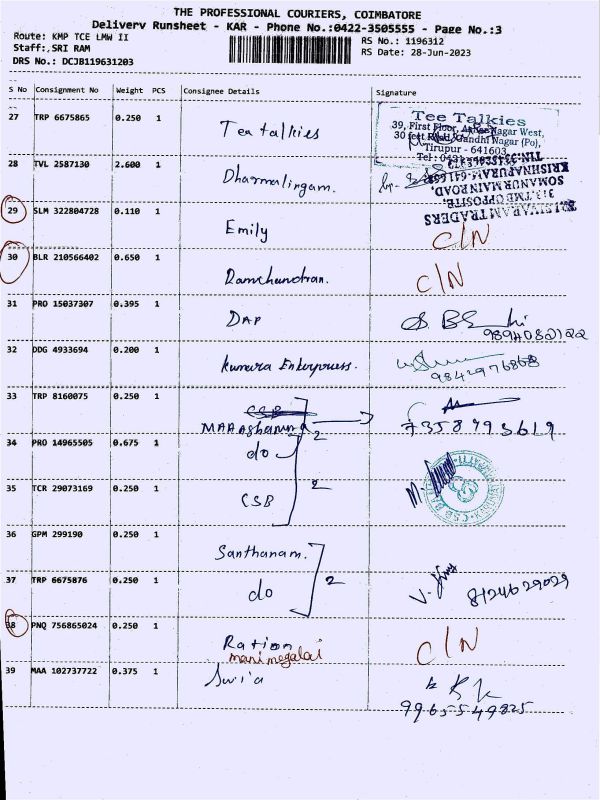 THE PROFESSIONAL COURIERS, COIMBATORE
Delivery Runsheet - KAR - Phone No.:0422-3505555 - Page No.:3
Route: KMP TCE LMW II RS No.: 1196312
Staff: SRI RAM RS Date: 28-Jun-2023
DRS No.: DCJB119631203
S No Consignment No Weight PCS Consignee Details Signature
27 TRP 6675865 0.250 1 Tea talkies
Tee Talkies
39, First Floor, Nagar West,
30 feet Road, Gandhi Nagar (Po),
Tirupur - 641603
28 TVL 2587130 2.600 1 Dharmalingam.
SIVARAM TRADERS
3/3, TMF OPPOSITE,
SOMANUR MAIN ROAD,
29 SLM 322804728 0.110 1 Emily C/N
30 BLR 210566402 0.650 1 Ramchandran. C/N
31 PRO 15037307 0.395 1 DAP
9894082122
32 DDG 4933694 0.200 1 Kumara Enterprises.
9842976868
33 TRP 8160075 0.250 1 CSB
2 7358793619
34 PRO 14965505 0.675 1 do
35 TCR 29073169 0.250 1 CSB 2
36 GPM 299190 0.250 1 Santhanam.
37 TRP 6675876 0.250 1 do 2 8124629029
38 PNQ 756865024 0.250 1 Ration C/N
manimegalai
39 MAA 102737722 0.375 1
9965549825